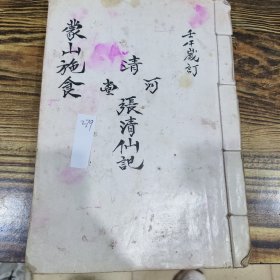 壬午歲訂
清河堂
張清仙記
蒙山施食
279